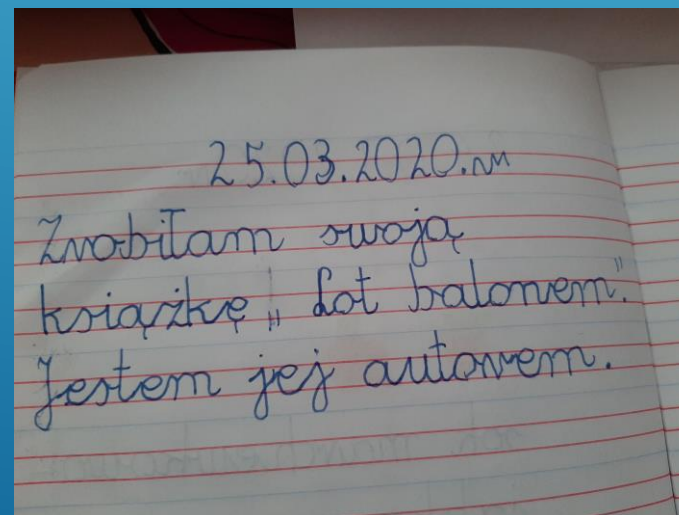 25.03.2020.r.
Zrobiłam swoją
książkę „Lot balonem".
Jestem jej autorem.